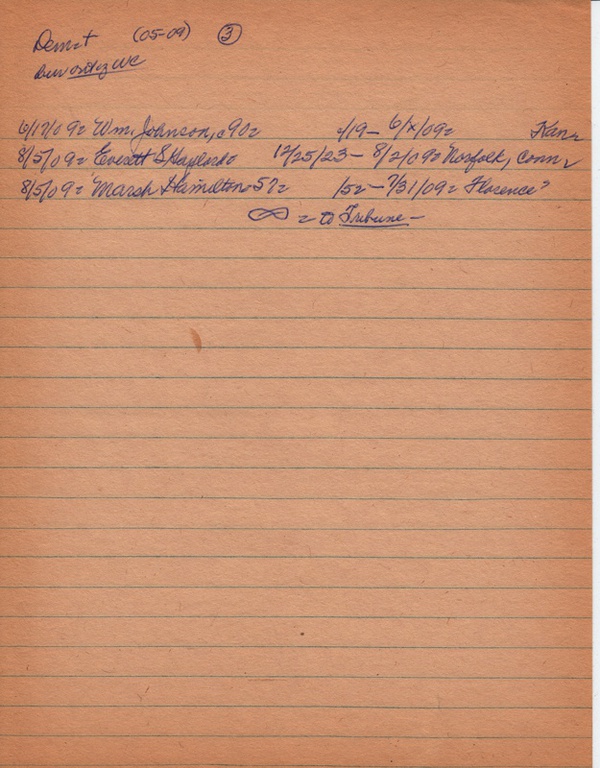 (05-09) 3
6/17/09 = Wm. Johnson, c90 = c/19 - 6/x/09 = Kan =
8/5/09 = Everett S. 12/25/23 - 8/2/09 = Norfolk, Conn =
8/5/09 = Marsh Hamilton 57 = /52 - 7/31/09 = Florence?
= to Tribune -